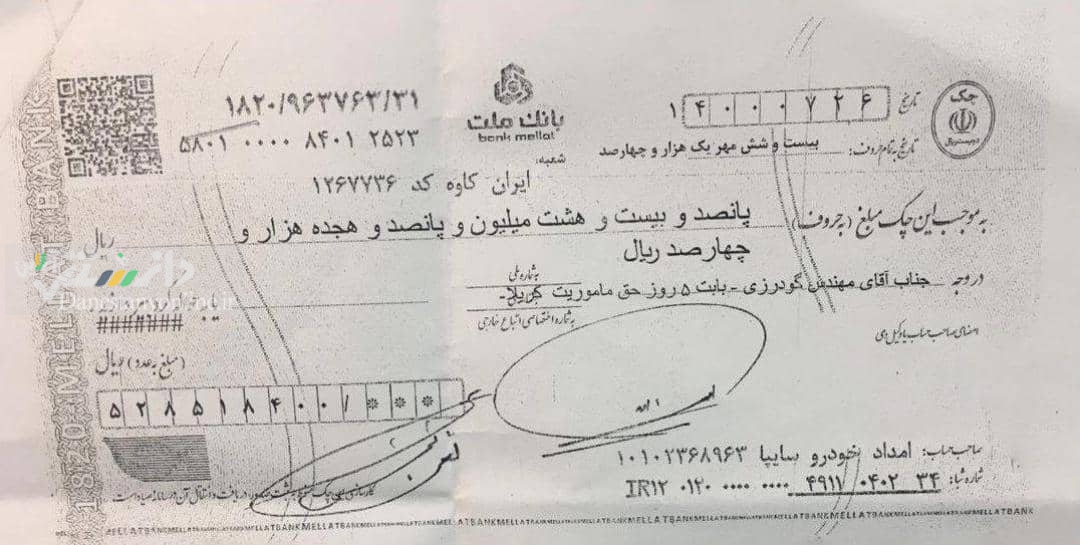 ۱۸۲۰/۹۶۳۷۶۳/۳۱
۵۸۰۱ ۰۰۰۰ ۸۴۰۱ ۲۵۲۳
بانك ملت
bank mellat
تاریخ ۱۴۰۰۰۷۲۶
چک
تاریخ به تمام حروف: بیست و شش مهر یک هزار و چهارصد
شعبه:
ایران کاوه کد ۱۲۶۷۷۳۶
به موجب این چک مبلغ (به حروف) پانصد و بیست و هشت میلیون و پانصد و هجده هزار و
چهارصد ریال
ریال
در وجه جناب آقای مهندس گودرزی - بابت ۵ روز حق ماموریت کربلا-
به شماره ملی
به شماره اختصاصی اتباع خارجی
#######
امضای صاحب حساب یا وکیل وی
(مبلغ به عدد) ریال
۵۲۸۵۱۸۴۰۰/***
صاحب حساب: امداد خودرو سایپا ۱۰۱۰۲۳۶۸۹۶۳
شماره شبا: IR۱۲ ۰۱۲۰ ۰۰۰۰ ۰۰۰۰ ۴۹۱۱ ۰۴۰۲ ۳۴
MELLATBANKMELLATBANKMELLATBANK